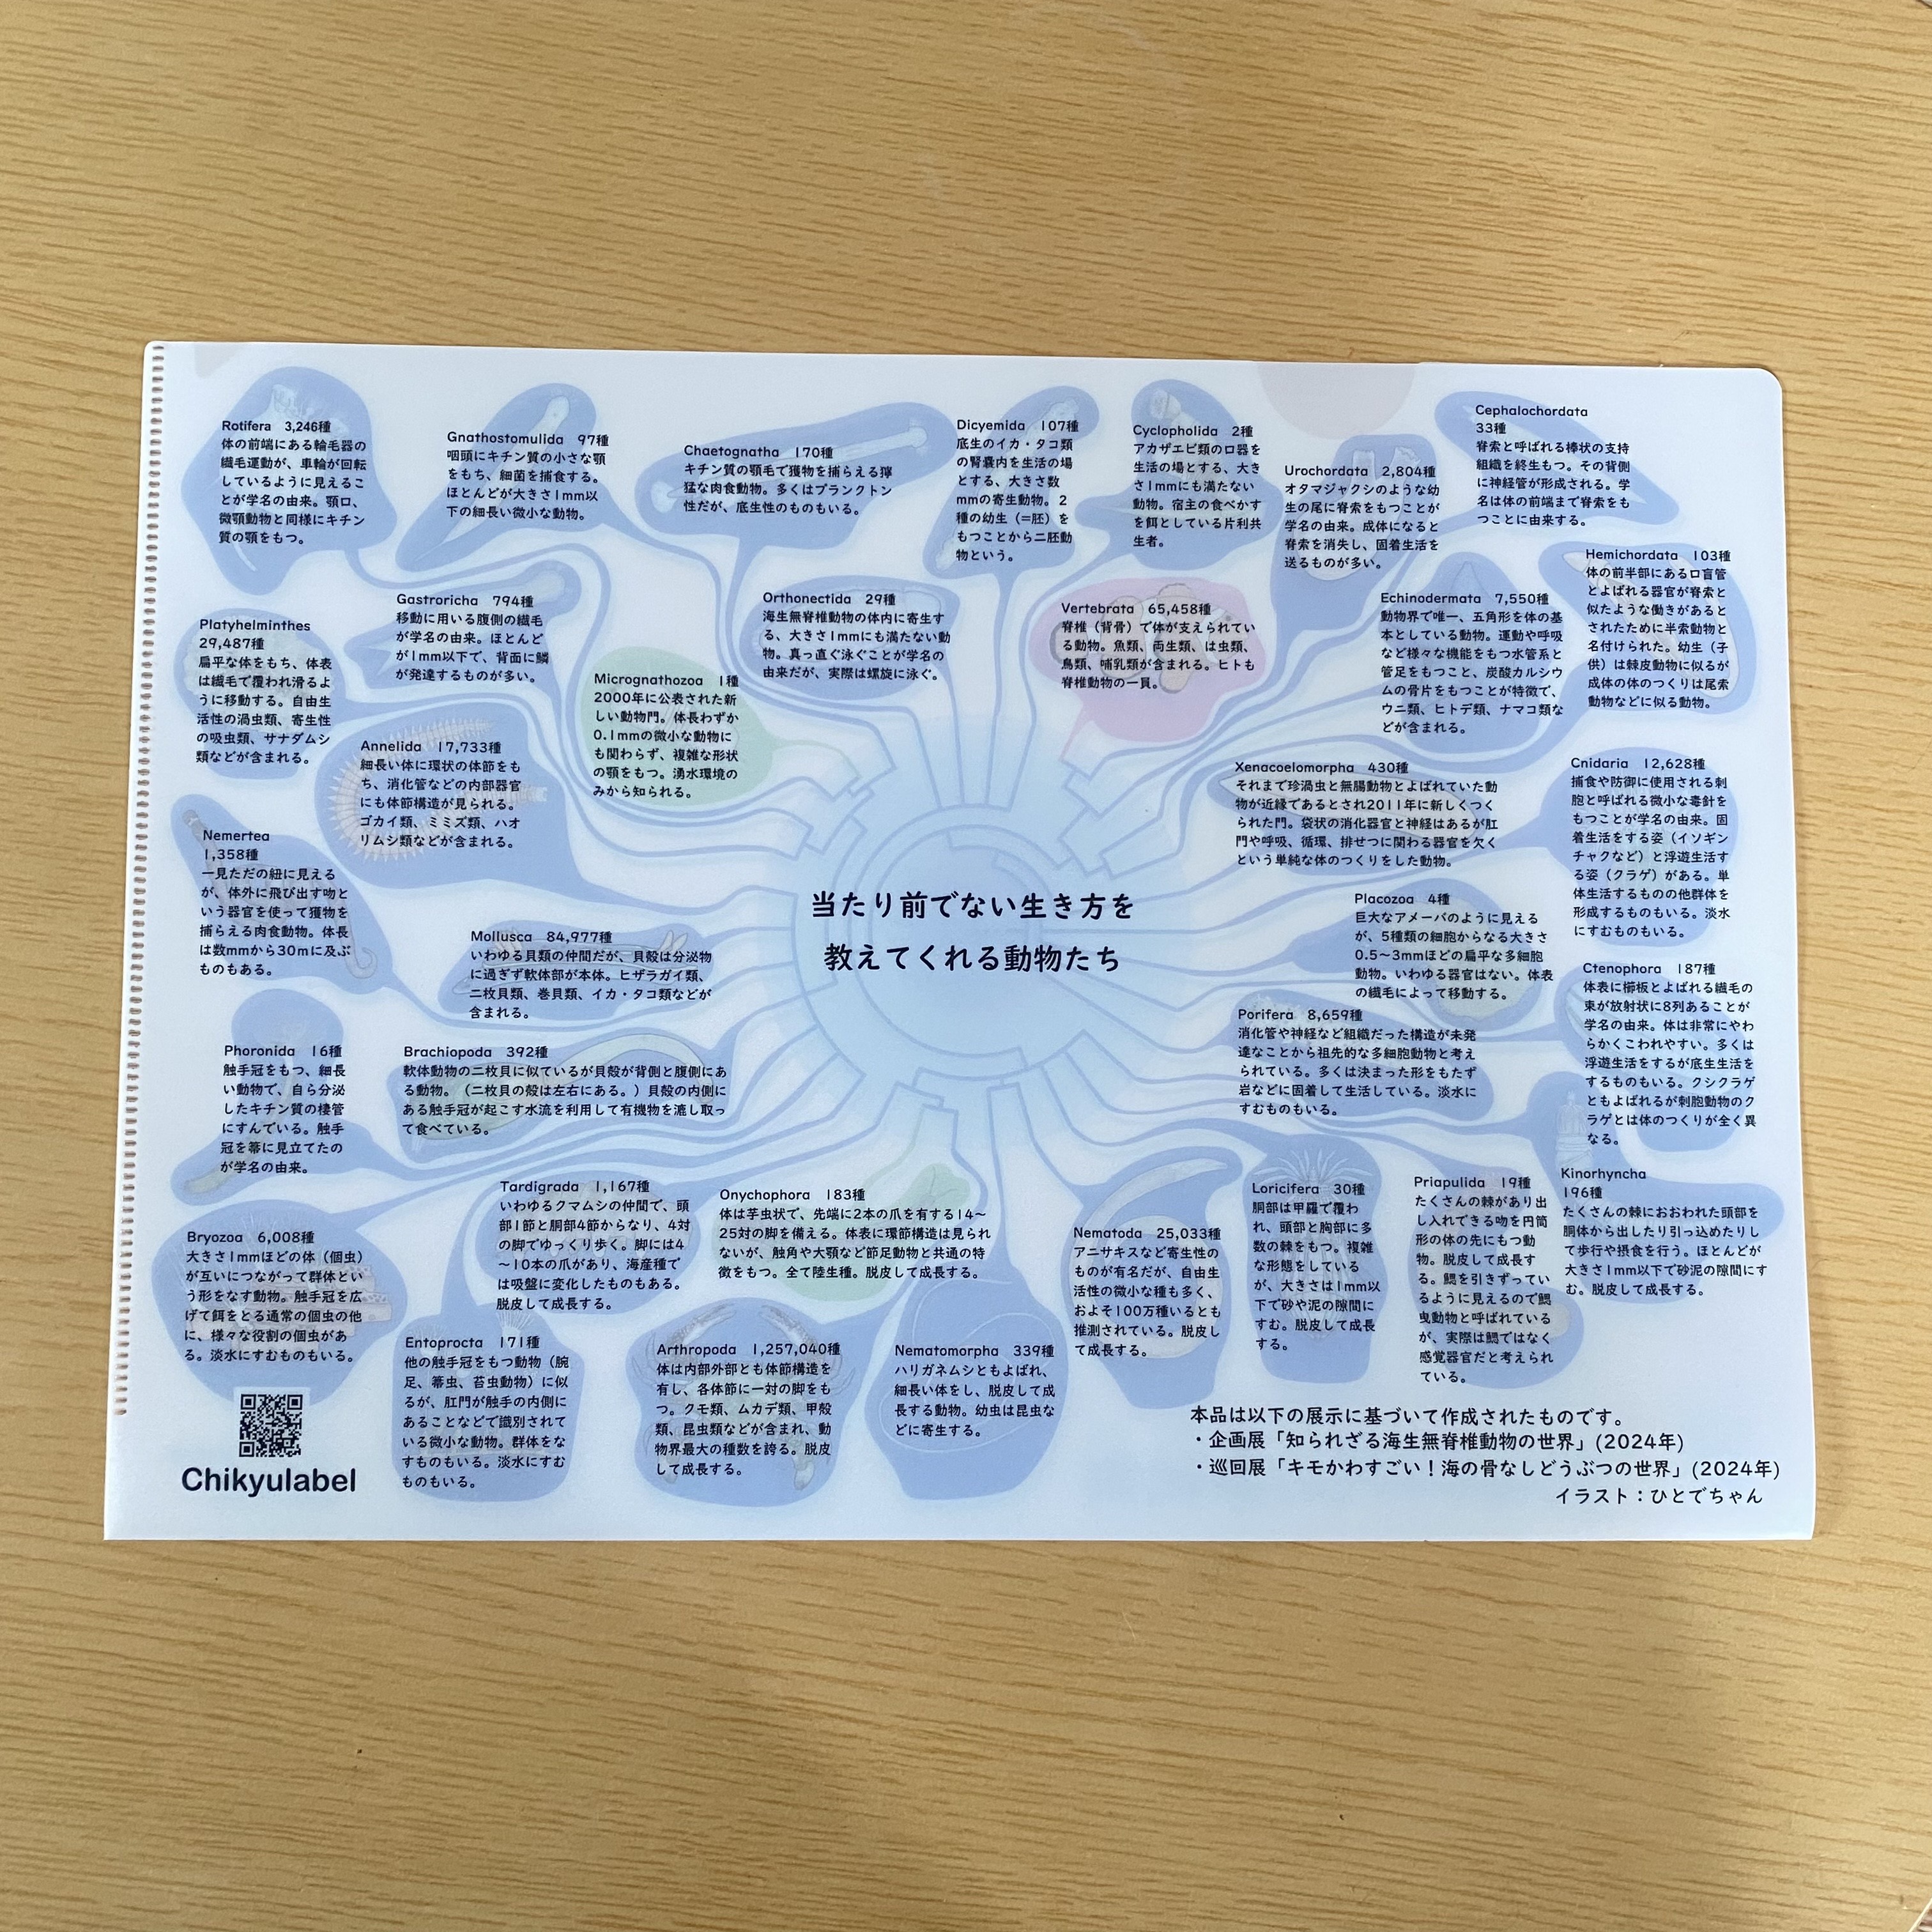 Rotifera 3,246種
体の前端にある輪毛器の
繊毛運動が、車輪が回転
しているように見えるこ
とが学名の由来。顎口、
微顎動物と同様にキチン
質の顎をもつ。
Gnathostomulida 97種
咽頭にキチン質の小さな顎
をもち、細菌を捕食する。
ほとんどが大きさ1mm以
下の細長い微小な動物。
Chaetognatha 170種
キチン質の顎毛で獲物を捕らえる獰
猛な肉食動物。多くはプランクトン
性だが、底生性のものもいる。
Dicyemida 107種
底生のイカ・タコ類
の腎嚢内を生活の場
とする、大きさ数
mmの寄生動物。2
種の幼生（=胚）を
もつことから二胚動
物という。
Cyclopholida 2種
アカザエビ類の口器を
生活の場とする、大き
さ1mmにも満たない
動物。宿主の食べかす
を餌としている片利共
生者。
Urochordata 2,804種
オタマジャクシのような幼
生の尾に脊索をもつことが
学名の由来。成体になると
脊索を消失し、固着生活を
送るものが多い。
Cephalochordata
33種
脊索と呼ばれる棒状の支持
組織を終生もつ。その背側
に神経管が形成される。学
名は体の前端まで脊索をも
つことに由来する。
Hemichordata 103種
体の前半部にある口盲管
とよばれる器官が脊索と
似たような働きがあると
されたために半索動物と
名付けられた。幼生（子
供）は棘皮動物に似るが
成体の体のつくりは尾索
動物などに似る動物。
Platyhelminthes
29,487種
扁平な体をもち、体表
は繊毛で覆われ滑るよ
うに移動する。自由生
活性の渦虫類、寄生性
の吸虫類、サナダムシ
類などが含まれる。
Gastroricha 794種
移動に用いる腹側の繊毛
が学名の由来。ほとんど
が1mm以下で、背面に鱗
が発達するものが多い。
Micrognathozoa 1種
2000年に公表された新
しい動物門。体長わずか
0.1mmの微小な動物に
も関わらず、複雑な形状
の顎をもつ。湧水環境の
みから知られる。
Orthonectida 29種
海生無脊椎動物の体内に寄生す
る、大きさ1mmにも満たない動
物。真っ直ぐ泳ぐことが学名の
由来だが、実際は螺旋に泳ぐ。
Vertebrata 65,458種
脊椎（背骨）で体が支えられてい
る動物。魚類、両生類、は虫類、
鳥類、哺乳類が含まれる。ヒトも
脊椎動物の一員。
Echinodermata 7,550種
動物界で唯一、五角形を体の基
本としている動物。運動や呼吸
など様々な機能をもつ水管系と
管足をもつこと、炭酸カルシウ
ムの骨片をもつことが特徴で、
ウニ類、ヒトデ類、ナマコ類な
どが含まれる。
Annelida 17,733種
細長い体に環状の体節をも
ち、消化管などの内部器官
にも体節構造が見られる。
ゴカイ類、ミミズ類、ハオ
リムシ類などが含まれる。
Xenacoelomorpha 430種
それまで珍渦虫と無腸動物とよばれていた動
物が近縁であるとされ2011年に新しくつく
られた門。袋状の消化器官と神経はあるが肛
門や呼吸、循環、排せつに関わる器官を欠く
という単純な体のつくりをした動物。
Cnidaria 12,628種
捕食や防御に使用される刺
胞と呼ばれる微小な毒針を
もつことが学名の由来。固
着生活をする姿（イソギン
チャクなど）と浮遊生活す
る姿（クラゲ）がある。単
体生活するものの他群体を
形成するものもいる。淡水
にすむものもいる。
Nemertea
1,358種
一見ただの紐に見える
が、体外に飛び出す吻と
いう器官を使って獲物を
捕らえる肉食動物。体長
は数mmから30mに及ぶ
ものもある。
Mollusca 84,977種
いわゆる貝類の仲間だが、貝殻は分泌物
に過ぎず軟体部が本体。ヒザラガイ類、
二枚貝類、巻貝類、イカ・タコ類などが
含まれる。
当たり前でない生き方を
教えてくれる動物たち
Placozoa 4種
巨大なアメーバのように見える
が、5種類の細胞からなる大きさ
0.5〜3mmほどの扁平な多細胞
動物。いわゆる器官はない。体表
の繊毛によって移動する。
Ctenophora 187種
体表に櫛板とよばれる繊毛の
束が放射状に8列あることが
学名の由来。体は非常にやわ
らかくこわれやすい。多くは
浮遊生活をするが底生生活を
するものもいる。クシクラゲ
ともよばれるが刺胞動物のク
ラゲとは体のつくりが全く異
なる。
Porifera 8,659種
消化管や神経など組織だった構造が未発
達なことから祖先的な多細胞動物と考え
られている。多くは決まった形をもたず
岩などに固着して生活している。淡水に
すむものもいる。
Phoronida 16種
触手冠をもつ、細長
い動物で、自ら分泌
したキチン質の棲管
にすんでいる。触手
冠を箒に見立てたの
が学名の由来。
Brachiopoda 392種
軟体動物の二枚貝に似ているが貝殻が背側と腹側にあ
る動物。（二枚貝の殻は左右にある。）貝殻の内側に
ある触手冠が起こす水流を利用して有機物を漉し取っ
て食べている。
Bryozoa 6,008種
大きさ1mmほどの体（個虫）
が互いにつながって群体とい
う形をなす動物。触手冠を広
げて餌をとる通常の個虫の他
に、様々な役割の個虫があ
る。淡水にすむものもいる。
Tardigrada 1,167種
いわゆるクマムシの仲間で、頭
部1節と胴部4節からなり、4対
の脚でゆっくり歩く。脚には4
〜10本の爪があり、海産種で
は吸盤に変化したものもある。
脱皮して成長する。
Onychophora 183種
体は芋虫状で、先端に2本の爪を有する14〜
25対の脚を備える。体表に環節構造は見られ
ないが、触角や大顎など節足動物と共通の特
徴をもつ。全て陸生種。脱皮して成長する。
Nematoda 25,033種
アニサキスなど寄生性の
ものが有名だが、自由生
活性の微小な種も多く、
およそ100万種いるとも
推測されている。脱皮し
て成長する。
Loricifera 30種
胴部は甲羅で覆わ
れ、頭部と胸部に多
数の棘をもつ。複雑
な形態をしている
が、大きさは1mm以
下で砂や泥の隙間に
すむ。脱皮して成長
する。
Priapulida 19種
たくさんの棘があり出
し入れできる吻を円筒
形の体の先にもつ動
物。脱皮して成長す
る。鰓を引きずってい
るように見えるので鰓
曳動物と呼ばれている
が、実際は鰓ではなく
感覚器官だと考えられ
ている。
Kinorhyncha
196種
たくさんの棘におおわれた頭部を
胴体から出したり引っ込めたりし
て歩行や摂食を行う。ほとんどが
大きさ1mm以下で砂泥の隙間にす
む。脱皮して成長する。
Entoprocta 171種
他の触手冠をもつ動物（腕
足、箒虫、苔虫動物）に似
るが、肛門が触手の内側に
あることなどで識別されて
いる微小な動物。群体をな
すものもいる。淡水にすむ
ものもいる。
Arthropoda 1,257,040種
体は内部外部とも体節構造を
有し、各体節に一対の脚をも
つ。クモ類、ムカデ類、甲殻
類、昆虫類などが含まれ、動
物界最大の種数を誇る。脱皮
して成長する。
Nematomorpha 339種
ハリガネムシともよばれ、
細長い体をし、脱皮して成
長する動物。幼虫は昆虫な
どに寄生する。
Chikyulabel
本品は以下の展示に基づいて作成されたものです。
・企画展「知られざる海生無脊椎動物の世界」(2024年)
・巡回展「キモかわすごい！海の骨なしどうぶつの世界」(2024年)
イラスト：ひとでちゃん